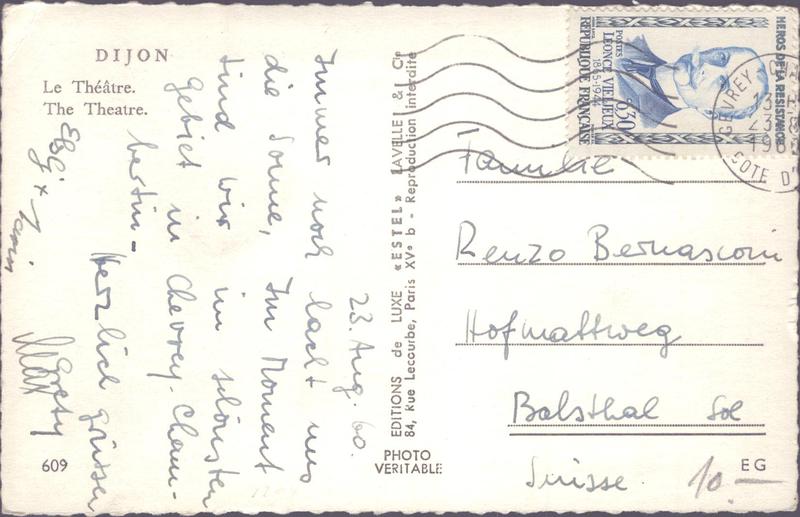 DIJON
Le Théâtre.
The Theatre.
23. Aug. 60.
Immer noch lacht uns
die Sonne, Im Moment
sind wir im schönsten
gebiet in Chevrey-Cham-
bertin.
Herzlich grüssen
Grety
609
EDITIONS de LUXE «ESTEL» LAVELLE & Cie
84, Rue Lecourbe, Paris XVe b - Reproduction interdite
PHOTO
VERITABLE
HEROS DE LA RESISTANCE
POSTES
LEONCE VIELJEUX
1865-1944
0,30
REPUBLIQUE FRANÇAISE
GEVREY
COTE D'
Familie
Renzo Bernasconi
Hofmattweg
Balsthal Sol
Suisse.
10.—
EG